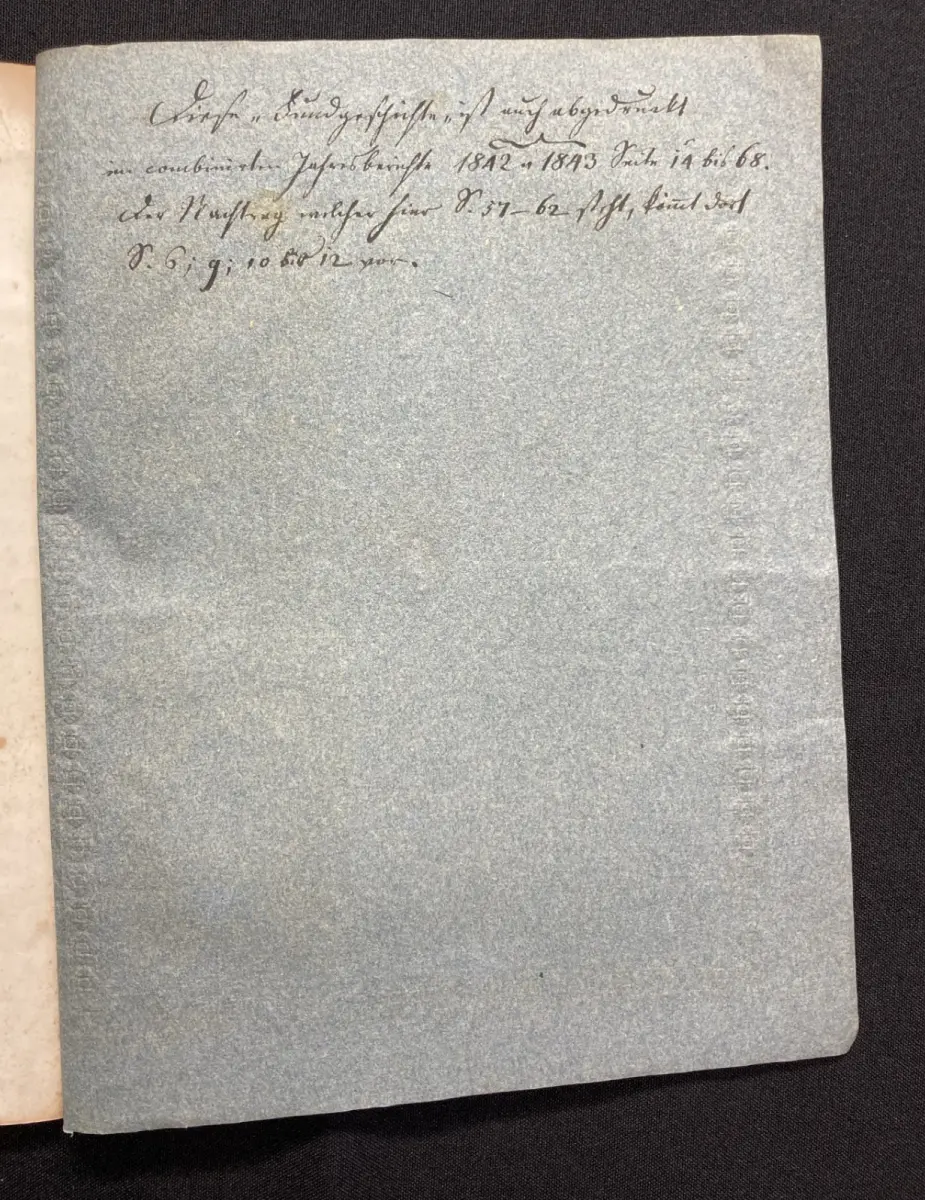 Diese „Fundgeschichte„ ist auch abgedruckt
im combinirten Jahresberichte 1842 u 1843 Seite 14 bis 68.
Der Nachtrag welcher hier S. 57–62 steht, kom̄t dort
S. 6; 9; 10 bis 12 vor.